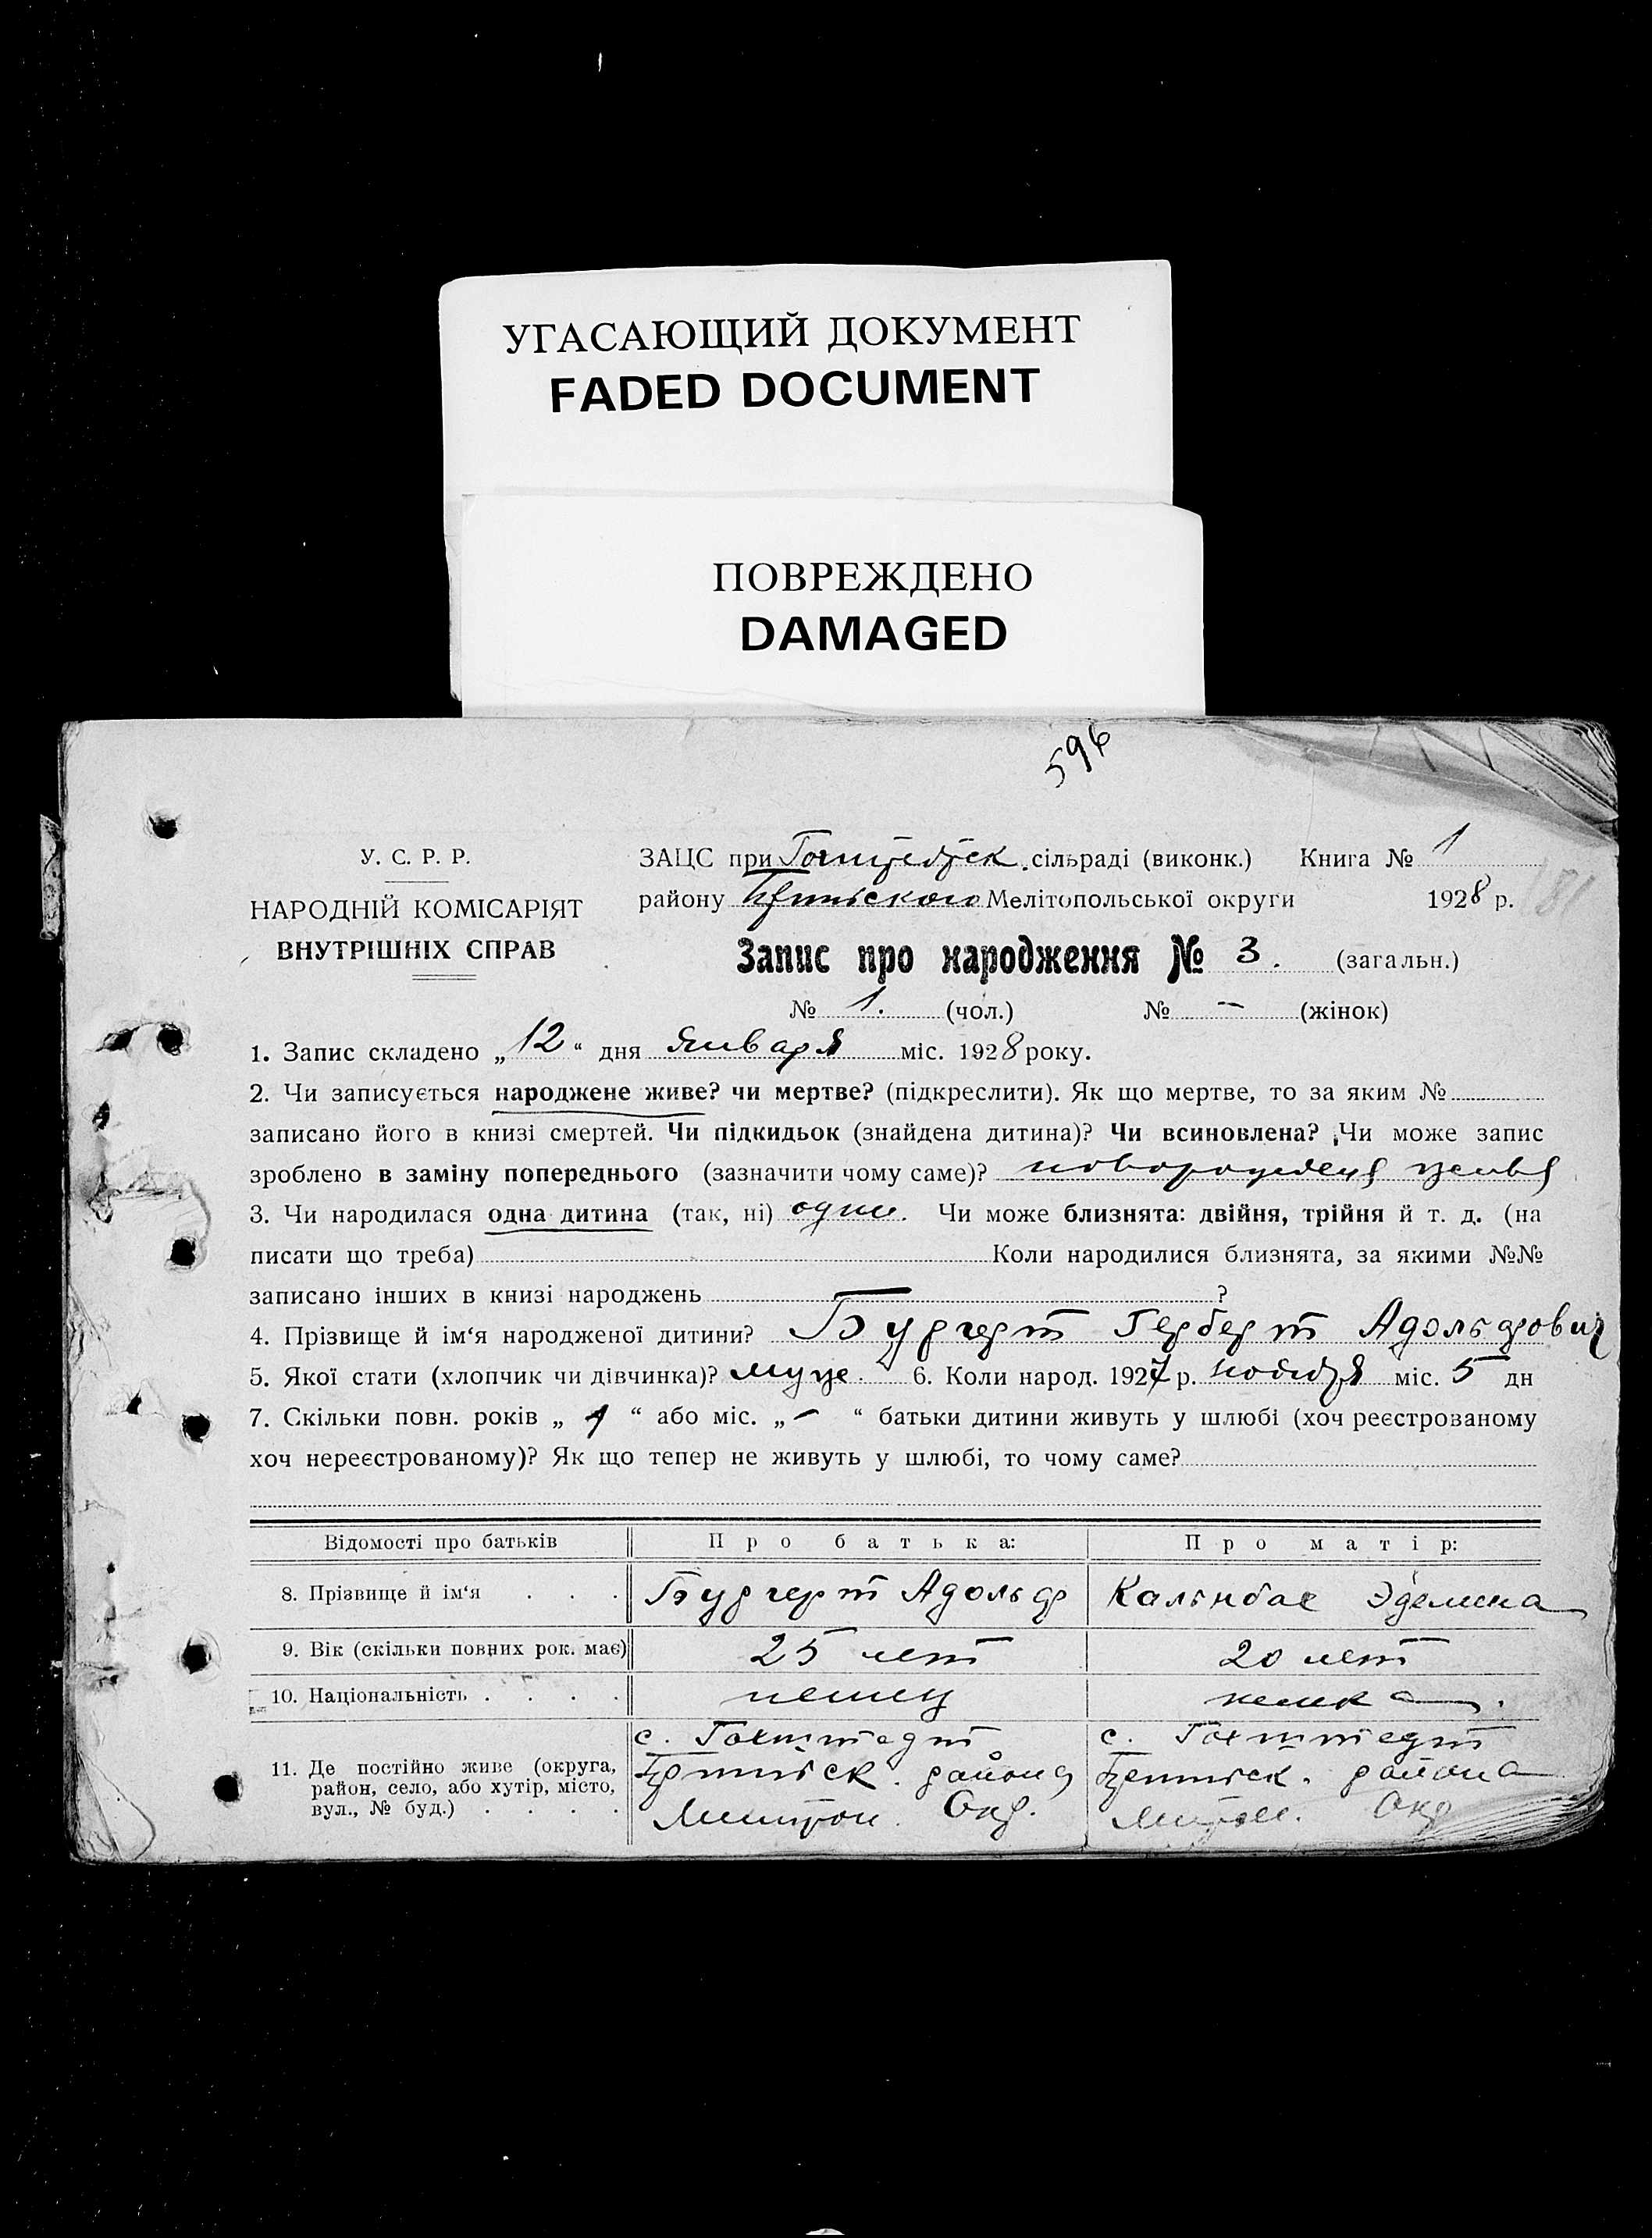 УГАСАЮЩИЙ ДОКУМЕНТ
FADED DOCUMENT
ПОВРЕЖДЕНО
DAMAGED
596
У. С. Р. Р.
НАРОДНІЙ КОМІСАРІЯТ
ВНУТРІШНІХ СПРАВ
ЗАЦС при сільраді (виконк.) Книга № 1
району Мелітопольської округи 1928 р. 181
Запис про народження № 3. (загальн.)
№ 1. (чол.) № — (жінок)
1. Запис складено „12“ дня января міс. 1928 року.
2. Чи записується народжене живе? чи мертве? (підкреслити). Як що мертве, то за яким №
записано його в книзі смертей. Чи підкидьок (знайдена дитина)? Чи всиновлена? Чи може запис
зроблено в заміну попереднього (зазначити чому саме)?
3. Чи народилася одна дитина (так, ні) один. Чи може близнята: двійня, трійня й т. д. (на
писати що треба) Коли народилися близнята, за якими №№
записано інших в книзі народжень ?
4. Прізвище й ім‘я народженої дитини? Бургерт Герберт Адольфович
5. Якої стати (хлопчик чи дівчинка)? муже. 6. Коли народ. 1927 р. ноября міс. 5 дн
7. Скільки повн. років „ 1 “ або міс. „ — “ батьки дитини живуть у шлюбі (хоч реєстрованому
хоч нереєстрованому)? Як що тепер не живуть у шлюбі, то чому саме?
Відомості про батьків Про батька: Про матір:
8. Прізвище й ім‘я . . . Бургерт Адольф
9. Вік (скільки повних рок. має) 25 лет 20 лет
10. Національність . . . . немец немка.
11. Де постійно живе (округа,
район, село, або хутір, місто,
вул., № буд.) . . . .
с. Гохштедт
района
Окр.
с. Гохштедт
района
Окр